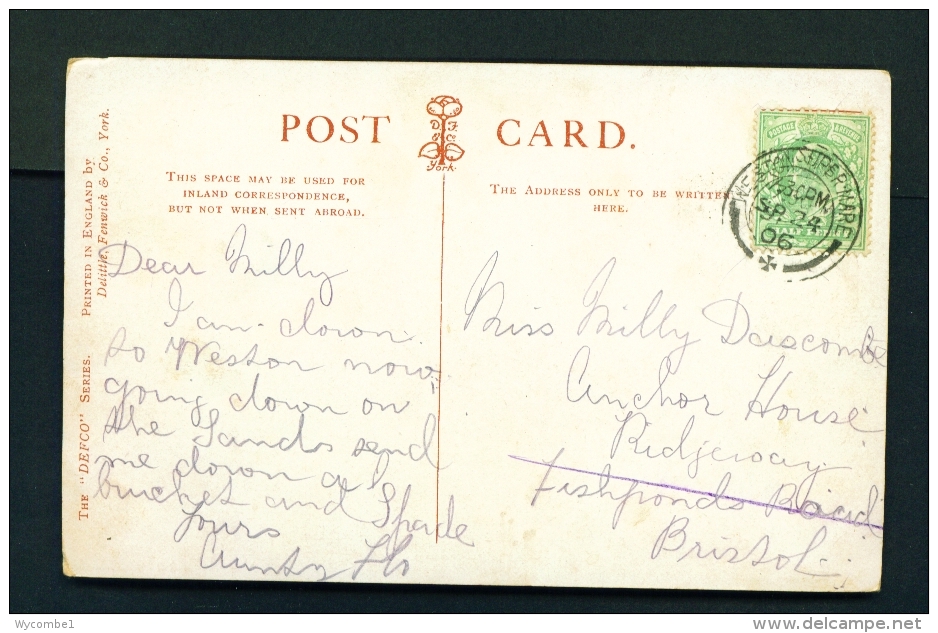 POST CARD.
D F
& Co
York.
THIS SPACE MAY BE USED FOR
INLAND CORRESPONDENCE,
BUT NOT WHEN SENT ABROAD.
THE ADDRESS ONLY TO BE WRITTEN
HERE.
WESTON-SUPER-MARE
PM
SP 24
06
POSTAGE
HALF PENNY
THE "DEFCO" SERIES. PRINTED IN ENGLAND by
Delittle, Fenwick & Co., York.
Dear Milly
I am down
to Weston now
going down on
the Sands send
me down a
bucket and Spade
Yours
Aunty Flo
Miss Milly Dascombe
Anchor House
Ridgeway
Fishponds Road
Bristol
Wycombe1
www.delcampe.net